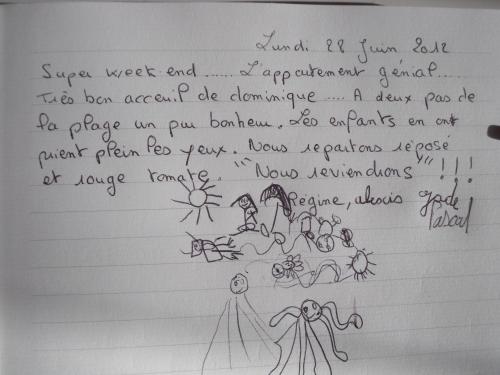 Lundi 28 Juin 2012
Super week end ...... L'appartement génial.....
Très bon acceuil de dominique .... A deux pas de
la plage un pur bonheur. Les enfants en ont
plein les yeux. Nous repartons réposé
et rouge tomate. "" Nous reviendrons "" !!!
Régine, alexis
Pascal